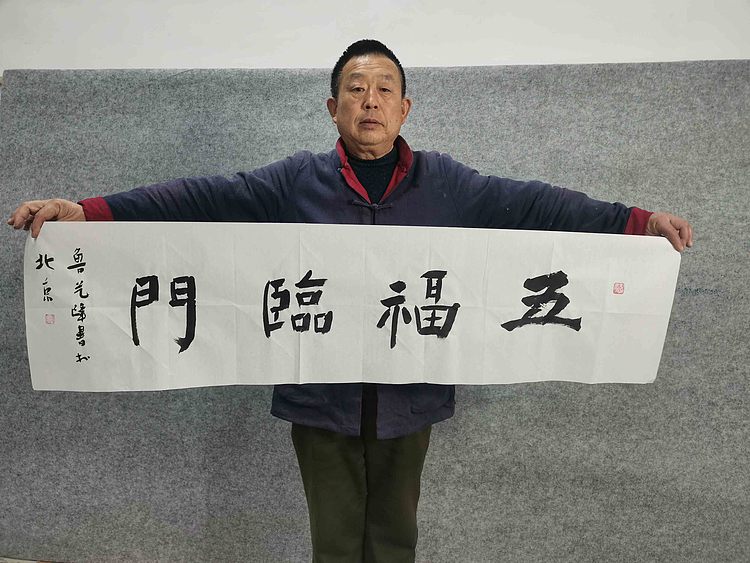 五福臨門
魯光峰書於
北京